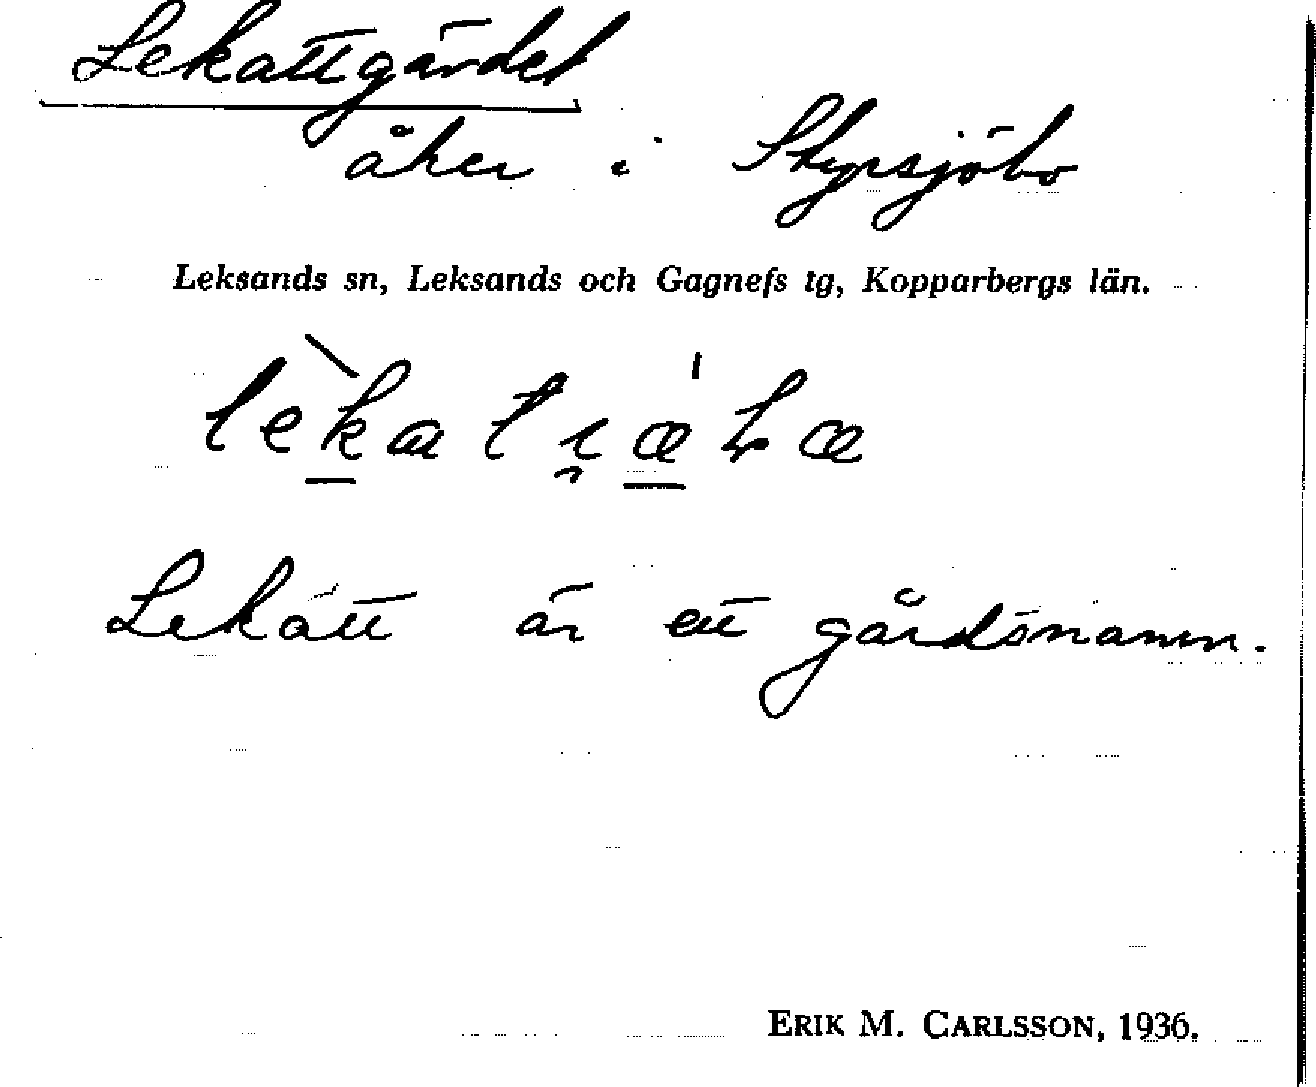 Lekattgärdet
åker i Styrsjöbo
Leksands sn, Leksands och Gagnefs tg, Kopparbergs län.
Lekatt är ett gårdsnamn.
ERIK M. CARLSSON, 1936.